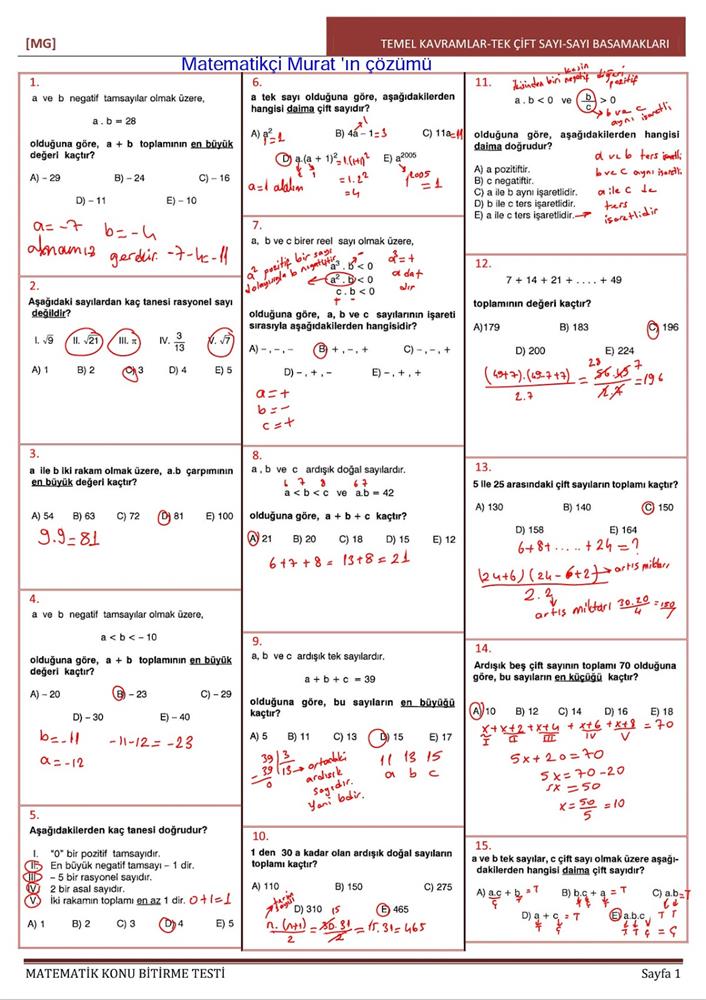 [MG]
TEMEL KAVRAMLAR-TEK ÇİFT SAYI-SAYI BASAMAKLARI
Matematikçi Murat 'ın çözümü
1.
a ve b negatif tamsayılar olmak üzere,
a . b = 28
olduğuna göre, a + b toplamının en büyük
değeri kaçtır?
A) – 29 B) – 24 C) – 16
D) – 11 E) – 10
a = -7 b = -4
almamız gerekir. -7-4=-11
2.
Aşağıdaki sayılardan kaç tanesi rasyonel sayı
değildir?
I. √9 II. √21 III. π IV. 3/13 V. √7
A) 1 B) 2 C) 3 D) 4 E) 5
3.
a ile b iki rakam olmak üzere, a.b çarpımının
en büyük değeri kaçtır?
A) 54 B) 63 C) 72 D) 81 E) 100
9.9=81
4.
a ve b negatif tamsayılar olmak üzere,
a < b < – 10
olduğuna göre, a + b toplamının en büyük
değeri kaçtır?
A) – 20 B) – 23 C) – 29
D) – 30 E) – 40
b=-11 -11-12=-23
a=-12
5.
Aşağıdakilerden kaç tanesi doğrudur?
I. "0" bir pozitif tamsayıdır.
II. En büyük negatif tamsayı – 1 dir.
III. – 5 bir rasyonel sayıdır.
IV. 2 bir asal sayıdır.
V. İki rakamın toplamı en az 1 dir. 0+1=1
A) 1 B) 2 C) 3 D) 4 E) 5
6.
a tek sayı olduğuna göre, aşağıdakilerden
hangisi daima çift sayıdır?
1
A) a² B) 4a – 1 = 3 C) 11a = 11
1²=1
D) a.(a + 1)² = 1.(1+1)² E) a²⁰⁰⁵
a=1 alalım = 1.2² 1²⁰⁰⁵
= 4 = 1
7.
a, b ve c birer reel sayı olmak üzere,
a² pozitif bir sayı
dolayısıyla b negatiftir
a³ . b < 0 a³=+
a² . b < 0 a da +
c . b < 0 dır
+ -
olduğuna göre, a, b ve c sayılarının işareti
sırasıyla aşağıdakilerden hangisidir?
A) – , – , – B) + , – , + C) – , – , +
D) – , + , – E) – , + , +
a = +
b = -
c = +
8.
a , b ve c ardışık doğal sayılardır.
6 7 8 6 7
a < b < c ve a.b = 42
olduğuna göre, a + b + c kaçtır?
A) 21 B) 20 C) 18 D) 15 E) 12
6+7+8 = 13+8 = 21
9.
a, b ve c ardışık tek sayılardır.
a + b + c = 39
olduğuna göre, bu sayıların en büyüğü
kaçtır?
A) 5 B) 11 C) 13 D) 15 E) 17
39 | 3 11 13 15
39 | 13 → ortadaki a b c
0 ardışık
sayıdır.
Yani bdir.
10.
1 den 30 a kadar olan ardışık doğal sayıların
toplamı kaçtır?
A) 110 B) 150 C) 275
terim
sayısı
D) 310 E) 465
n.(n+1)/2 = 30.31/2 = 15.31 = 465
15
11.
ikisinden biri kesin negatif diğeri
pozitif
a . b < 0 ve b/c > 0
b ve c
aynı işaretli
olduğuna göre, aşağıdakilerden hangisi
daima doğrudur?
A) a pozitiftir.
B) c negatiftir.
C) a ile b aynı işaretlidir.
D) b ile c ters işaretlidir.
E) a ile c ters işaretlidir.
a ve b ters işaretli
b ve c aynı işaretli
a ile c de
ters
işaretlidir
12.
7 + 14 + 21 + . . . . + 49
toplamının değeri kaçtır?
A)179 B) 183 C) 196
D) 200 E) 224
(49+7).(49-7+7)/2.7 = 56.49/2.7 = 196
28 7
13.
5 ile 25 arasındaki çift sayıların toplamı kaçtır?
A) 130 B) 140 C) 150
D) 158 E) 164
6+8+.....+24=?
(24+6)(24-6+2) → artış miktarı
2.2
artış miktarı 30.20/4 = 150
14.
Ardışık beş çift sayının toplamı 70 olduğuna
göre, bu sayıların en küçüğü kaçtır?
A) 10 B) 12 C) 14 D) 16 E) 18
x + x+2 + x+4 + x+6 + x+8 = 70
I II III IV V
5x+20=70
5x=70-20
5x=50
x = 50/5 = 10
15.
a ve b tek sayılar, c çift sayı olmak üzere aşağı-
dakilerden hangisi daima çift sayıdır?
A) a.c + b = T B) b.c + a = T C) a.b = T
Ç T Ç T T T
D) a + c = T E) a.b.c
T Ç T T Ç = Ç
MATEMATİK KONU BİTİRME TESTİ
Sayfa 1